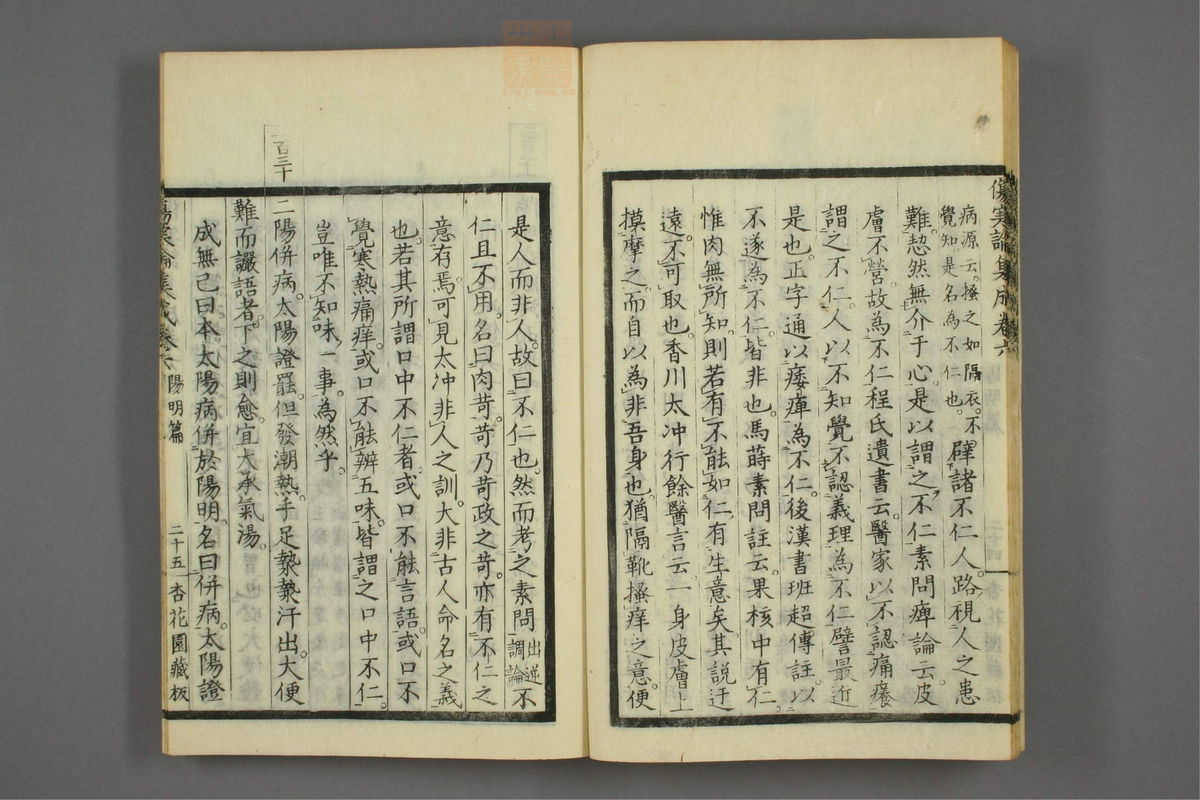 傷寒論集成卷六
病源云。搔之如隔衣。不
覺知是名為不仁也。
譬諸不仁人。路視人之患
難。恝然無介于心。是以謂之不仁素問痺論云。皮
膚不營。故為不仁程氏遺書云。醫家以不認痛癢
謂之不仁。人以不知覺不認義理為不仁。譬最近
是也。正字通以痿痺為不仁。後漢書班超傳註以
不遂為不仁。皆非也。馬蒔素問註云果核中有仁。
惟肉無所知。則若有不能如仁有生意矣。其說迂
遠。不可取也。香川太冲行餘醫言云。一身皮膚上
摸摩之。而自以為非吾身也。猶隔靴搔痒之意。便
是人而非人。故曰不仁也。然而考之素問
出逆
調論
不
仁且不用。名曰肉苛。苛乃苛政之苛。亦有不仁之
意有焉。可見太冲非人之訓。大非古人命名之義
也。若其所謂口中不仁者。或口不能言語。或口不
覺寒熱痛痒。或口不能辨五味。皆謂之口中不仁。
豈唯不知味。一事為然乎。
二百三十
二陽併病。太陽證罷。但發潮熱。手足漐漐汗出。大便
難而讝語者。下之則愈。宜大承氣湯。
成無己曰。本太陽病併於陽明。名曰併病。太陽證
傷寒論集成卷六
陽明篇
二十五
杏花園藏板